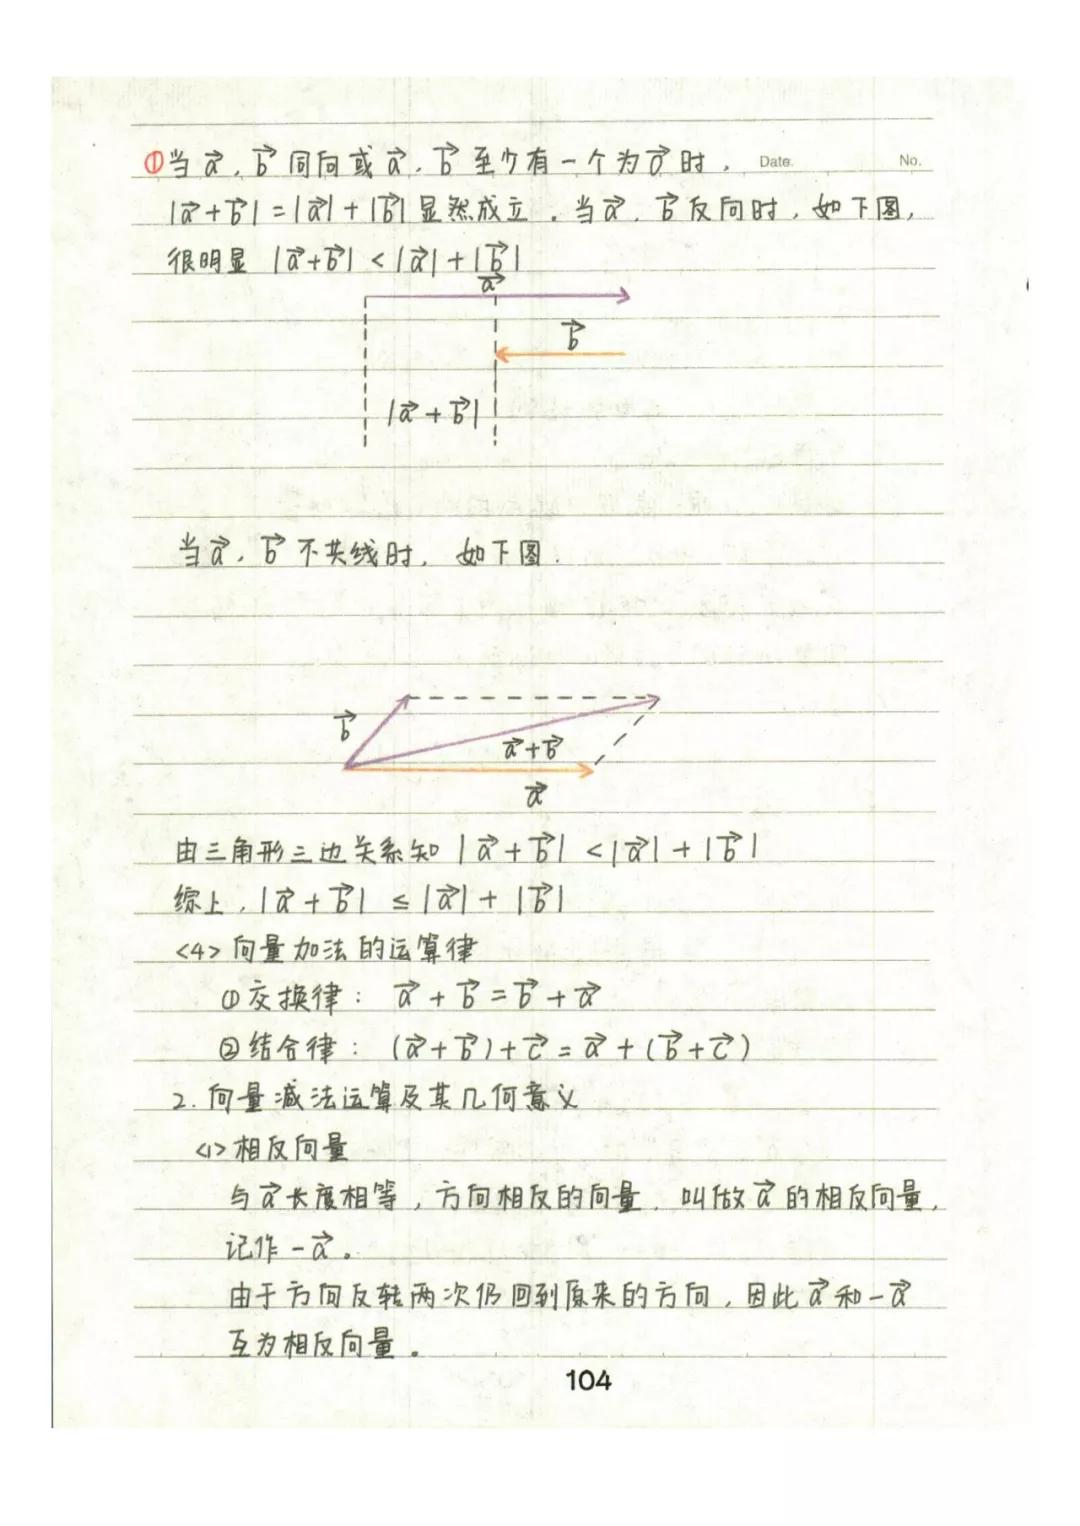 ①当a⃗,b⃗同向或a⃗,b⃗至少有一个为0⃗时, Date. No.
|a⃗+b⃗|=|a⃗|+|b⃗|显然成立。当a⃗,b⃗反向时,如下图,
很明显 |a⃗+b⃗|<|a⃗|+|b⃗|
a⃗
b⃗
|a⃗+b⃗|
当a⃗,b⃗不共线时,如下图.
b⃗
a⃗+b⃗
a⃗
由三角形三边关系知|a⃗+b⃗|<|a⃗|+|b⃗|
综上,|a⃗+b⃗|≤|a⃗|+|b⃗|
<4>向量加法的运算律
①交换律: a⃗+b⃗=b⃗+a⃗
②结合律: (a⃗+b⃗)+c⃗=a⃗+(b⃗+c⃗)
2.向量减法运算及其几何意义
<1>相反向量
与a⃗长度相等,方向相反的向量,叫做a⃗的相反向量,
记作-a⃗。
由于方向反转两次仍回到原来的方向,因此a⃗和-a⃗
互为相反向量。
104